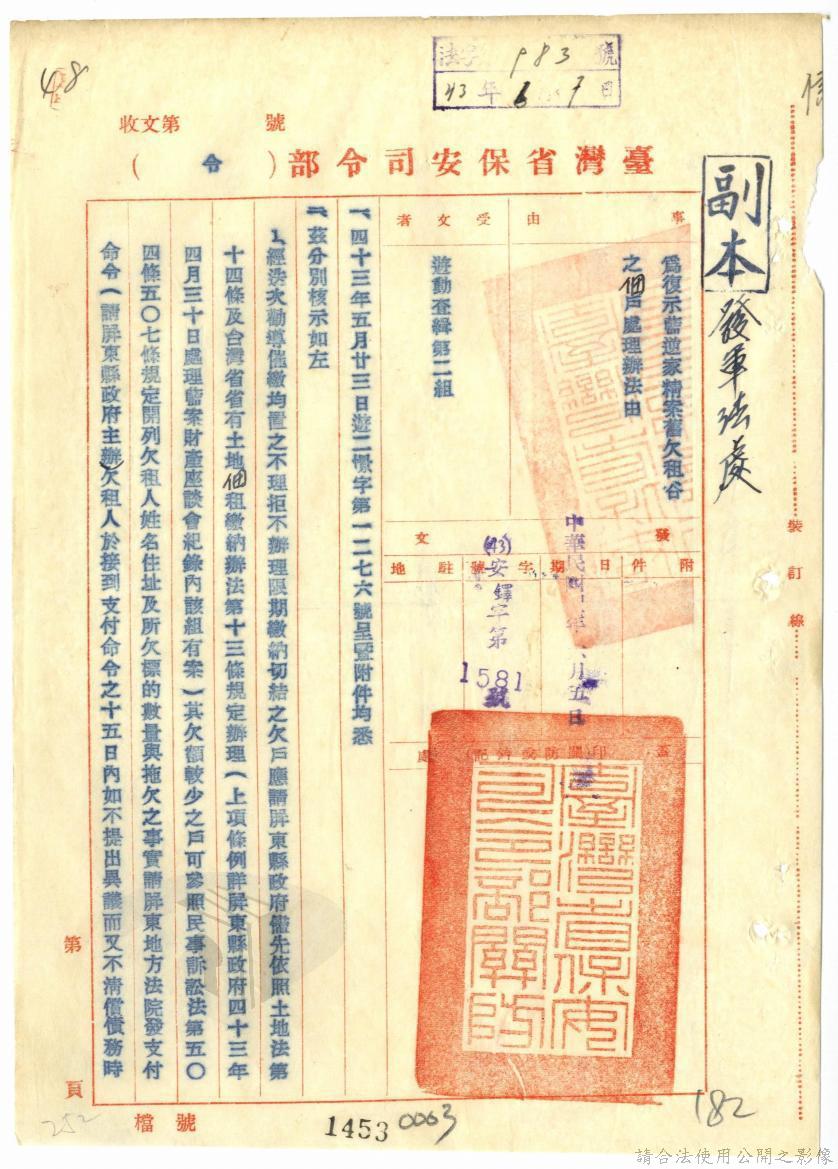 48
法字 983 號
43年6月7日
收文第 號
臺灣省保安司令部(令)
副本
發軍法處
事由
為復示藍道家精案舊欠租谷
之佃戶處理辦法由
受文者
遊動查緝第二組
發文
附件
日期
字號
駐地
中華民國 年六月五日
(43)安鐸字第
1581號
蓋印
處
臺灣省保安司令部關防
一、四十三年五月廿三日遊二懲字第一二七六號呈暨附件均悉
二、茲分別核示如左
1.經迭次勸導催繳均置之不理拒不辦理限期繳納切結之欠戶應請屏東縣政府儘先依照土地法第
十四條及台灣省省有土地佃租繳納辦法第十三條規定辦理(上項條例詳屏東縣政府四十三年
四月三十日處理藍案財產座談會紀錄內該組有案)其欠額較少之戶可參照民事訴訟法第五〇
四條五〇七條規定開列欠租人姓名住址及所欠標的數量與拖欠之事實請屏東地方法院發支付
命令(請屏東縣政府主辦)欠租人於接到支付命令之十五日內如不提出異議而又不清償債務時
裝訂線
第 頁
檔號
252
1453
0063
182
請合法使用公開之影像